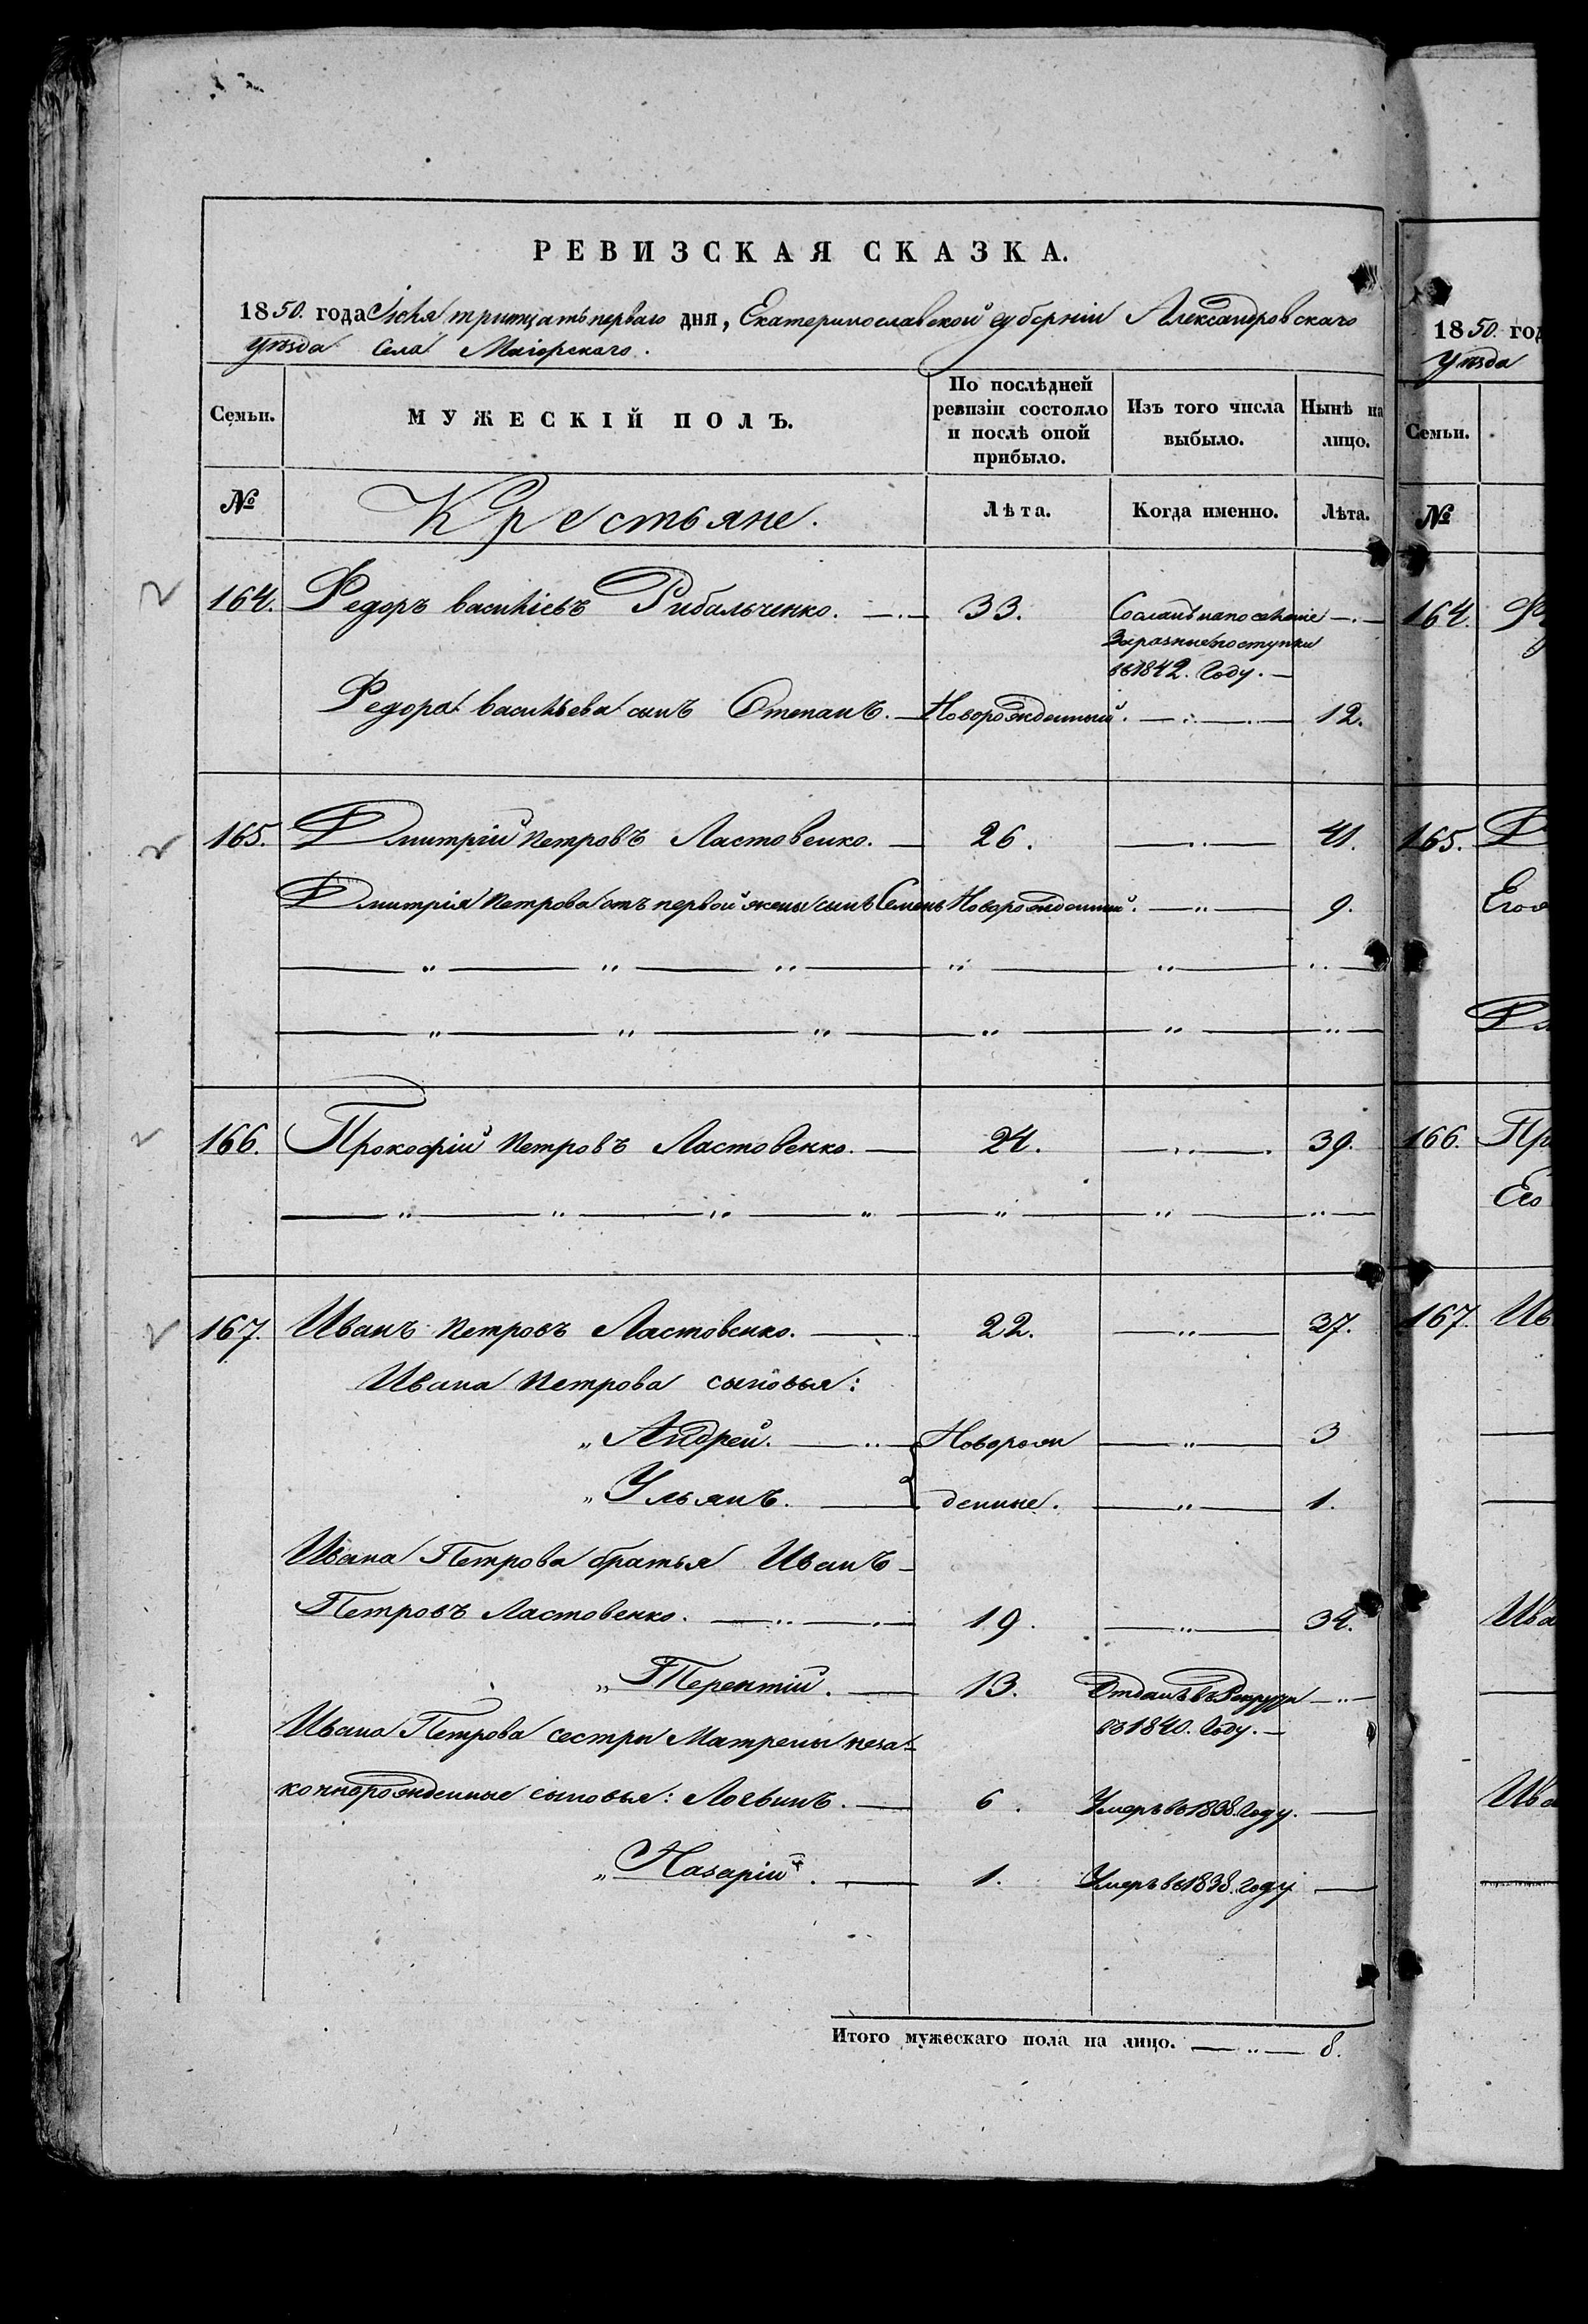 РЕВИЗСКАЯ СКАЗКА.
1850. года Іюля тритцать перваго дня, Екатеринославской губерніи Александровскаго
уѣзда села Маіорскаго.
Семьи. МУЖЕСКІЙ ПОЛЪ. По послѣдней ревизіи состояло и послѣ оной прибыло. Изъ того числа выбыло. Нынѣ на лицо.
№ Крестьяне. Лѣта. Когда именно. Лѣта.
164. Федоръ васильевъ Рибальченко. 33. Сосланъ на поселеніе
За разные поступки
въ 1842. Году.
Федора васильева сынъ Степанъ. Новорожденный. 12.
165. Дмитрій Петровъ Ластовенко. 26. 41.
Дмитрія Петрова отъ первой жены сынъ Семенъ Новорожденный. 9.
166. Прокофій Петровъ Ластовенко. 24. 39.
167. Иванъ Петровъ Ластовенко. 22. 37.
Ивана Петрова сыновья:
„ Андрей. Новорож 3
„ Ульянъ. денные. 1.
Ивана Петрова братья Иванъ
Петровъ Ластовенко. 19. 34.
„ Терентій. 13. Отданъ въ Рекруты
въ 1840. Году.
Ивана Петрова сестры Матрены неза-
коннорожденные сыновья: Логвинъ. 6. Умеръ въ 1838. Году.
„ Назарій. 1. Умеръ въ 1838. Году
Итого мужескаго пола на лицо. 8.
1850. год
уѣзда
Семьи.
№
164.
165. Д
Его
166. Пр
Его
167. Ив
Ива
Ива